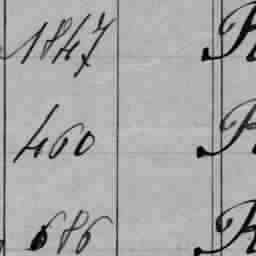 1847
460
686